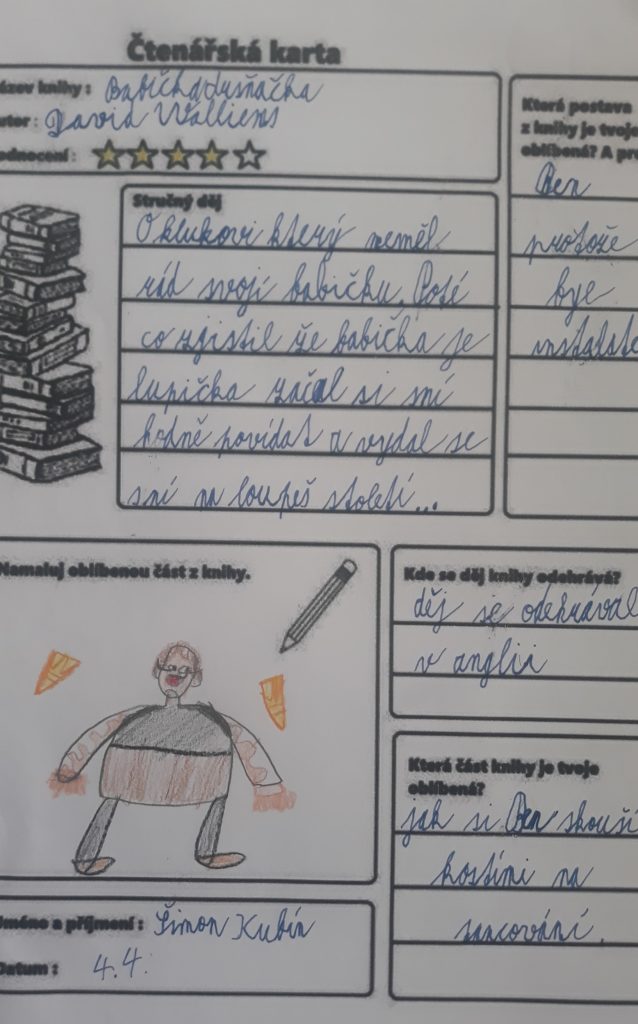 Čtenářská karta
ázev knihy : Babička drsňačka
utor : David Walliems
odnocení :
Která postava
z knihy je tvoje
oblíbená? A pro
Ben
protože
bye
instalate
Stručný děj
O klukovi který neměl
rád svojí babičku. Poté
co zjistil že babička je
lupička začal si sní
hodně povídat a vydal se
sní na loupeš století...
Namaluj oblíbenou část z knihy.
Kde se děj knihy odehrává?
děj se odehrával
v anglii
Která část knihy je tvoje
oblíbená?
jak si Ben skouší
kostími na
tancování.
Jméno a příjmení : Šimon Kubín
Datum : 4.4.